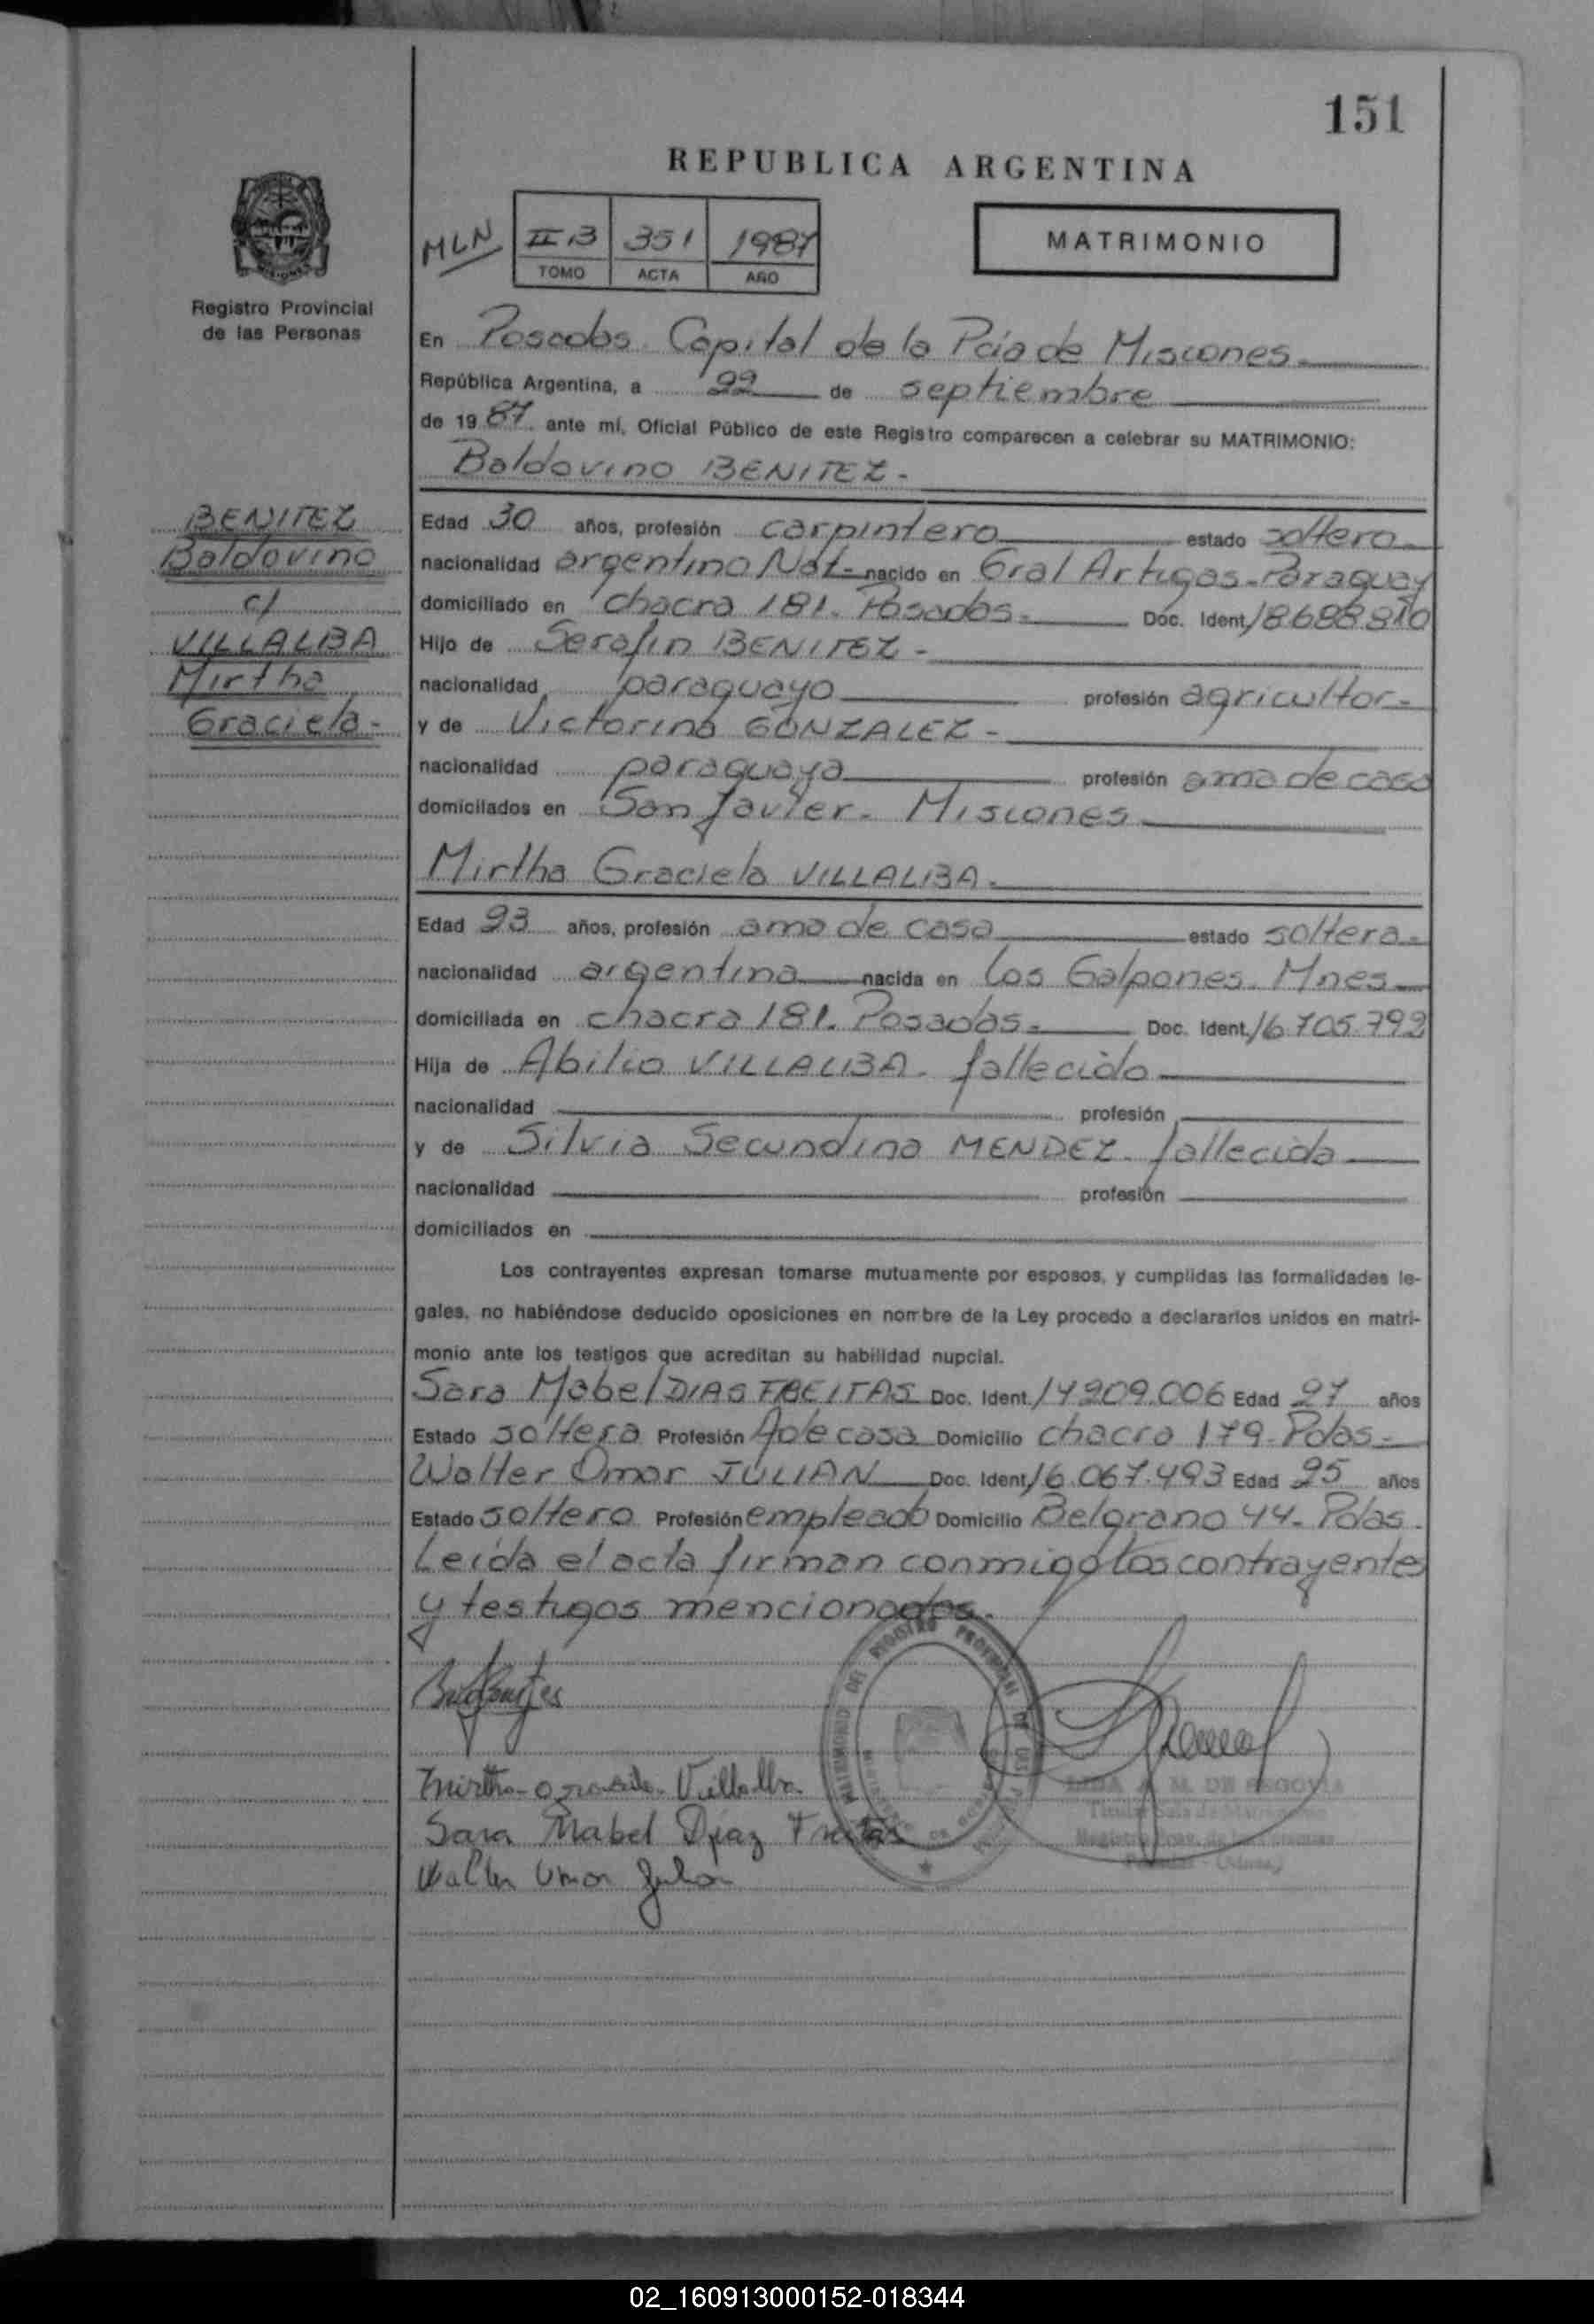 151
REPUBLICA ARGENTINA
MLN
II B 351 1987
TOMO ACTA AÑO
MATRIMONIO
Registro Provincial
de las Personas
En Posadas Capital de la Pcia de Misiones
República Argentina, a 22 de septiembre
de 1987 ante mí, Oficial Público de este Registro comparecen a celebrar su MATRIMONIO:
Baldovino BENITEZ -
BENITEZ
Baldovino
c/
VILLALBA
Mirtha
Graciela -
Edad 30 años, profesión carpintero estado soltero
nacionalidad argentino Nat- nacido en Gral Artigas - Paraguay
domiciliado en chacra 181. Posadas - Doc. Ident. 18688810
Hijo de Serafin BENITEZ -
nacionalidad paraguayo profesión agricultor -
y de Victorina GONZALEZ -
nacionalidad paraguaya profesión ama de casa
domiciliados en San Javier - Misiones
Mirtha Graciela VILLALBA -
Edad 23 años, profesión ama de casa estado soltera -
nacionalidad argentina nacida en Los Galpones. Mnes
domiciliada en chacra 181. Posadas - Doc. Ident. 16.705.792
Hija de Abilio VILLALBA - fallecido
nacionalidad profesión
y de Silvia Secundina MENDEZ - fallecida
nacionalidad profesión
domiciliados en
Los contrayentes expresan tomarse mutuamente por esposos, y cumplidas las formalidades le-
gales, no habiéndose deducido oposiciones en nombre de la Ley procedo a declararlos unidos en matri-
monio ante los testigos que acreditan su habilidad nupcial.
Sara Mabel DIAS FREITAS Doc. Ident. 14209.006 Edad 27 años
Estado soltera Profesión A de casa Domicilio chacra 179 - Pdas -
Walter Omar JULIAN Doc. Ident. 16.067.493 Edad 25 años
Estado soltero Profesión empleado Domicilio Belgrano 44 - Pdas.
Leída el acta firman conmigo los contrayentes
y testigos mencionados.
Mirtha Graciela Villalba
Sara Mabel Diaz Freitas
Walter Omar Julian
A. M. DE SEGOVIA
02_160913000152-018344